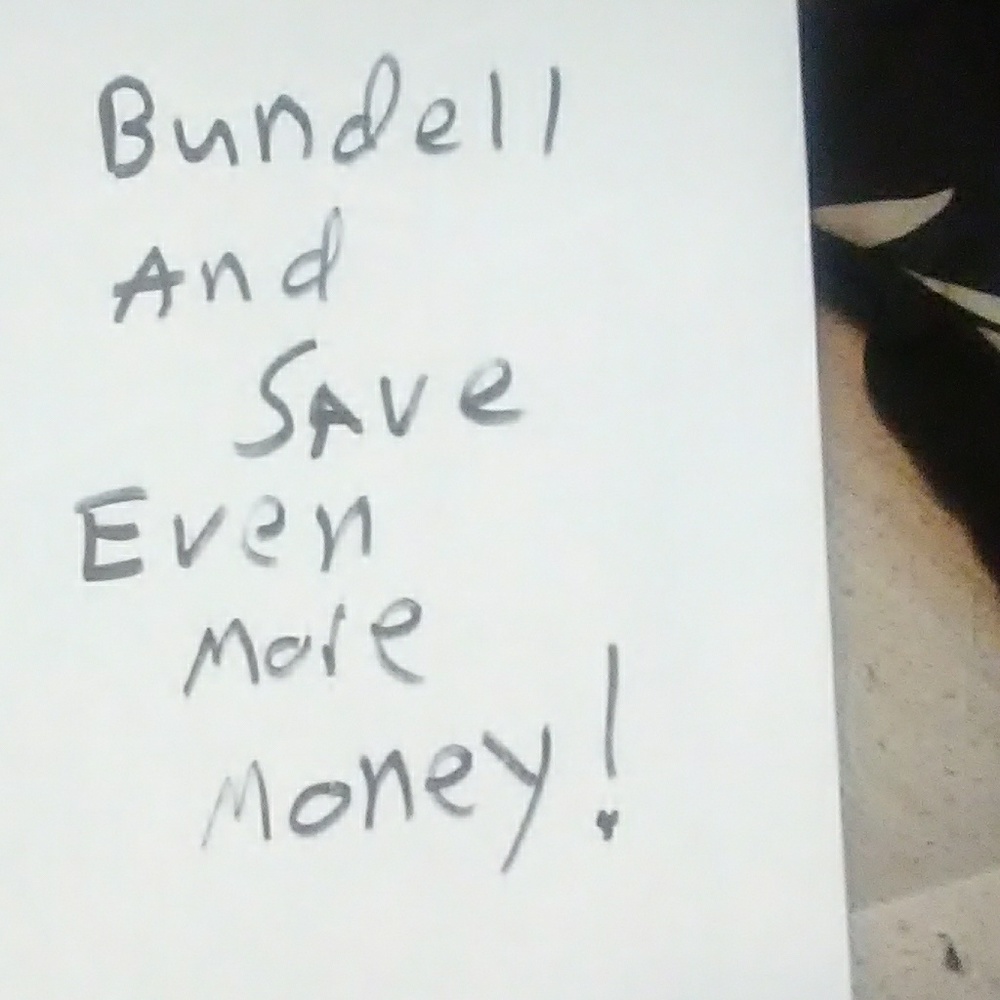 Bundell
And
Save
Even
More
Money!